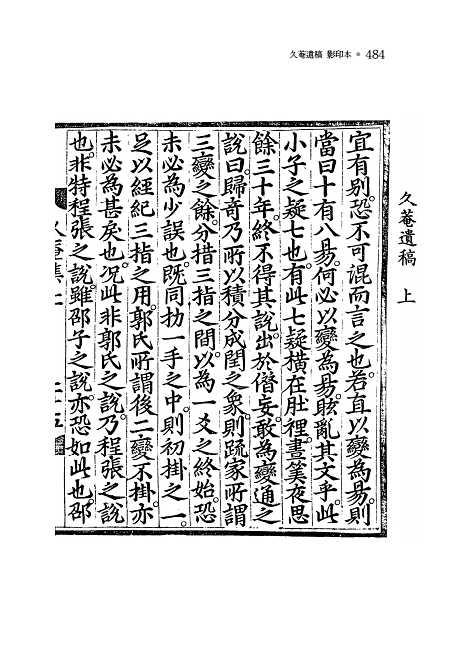 久菴遺稿 影印本 · 484
久菴遺稿 上
宜有別。恐不可混而言之也。若直以變為易。則
當曰十有八易。何必以變為易。眩亂其文乎。此
小子之疑七也。有此七疑。橫在肚裡。晝筭夜思
餘三十年。終不得其說。出於僭妄。敢為變通之
說曰。歸奇乃所以積分成閏之象。則疏家所謂
三變之餘。分措三指之間。以為一爻之終始。恐
未必為少誤也。既同扐一手之中。則初掛之一。
足以經紀三指之用。郭氏所謂後二變不掛。亦
未必為甚戾也。况此非郭氏之說。乃程張之說
也。非特程張之說。雖邵子之說。亦恐如此也。邵